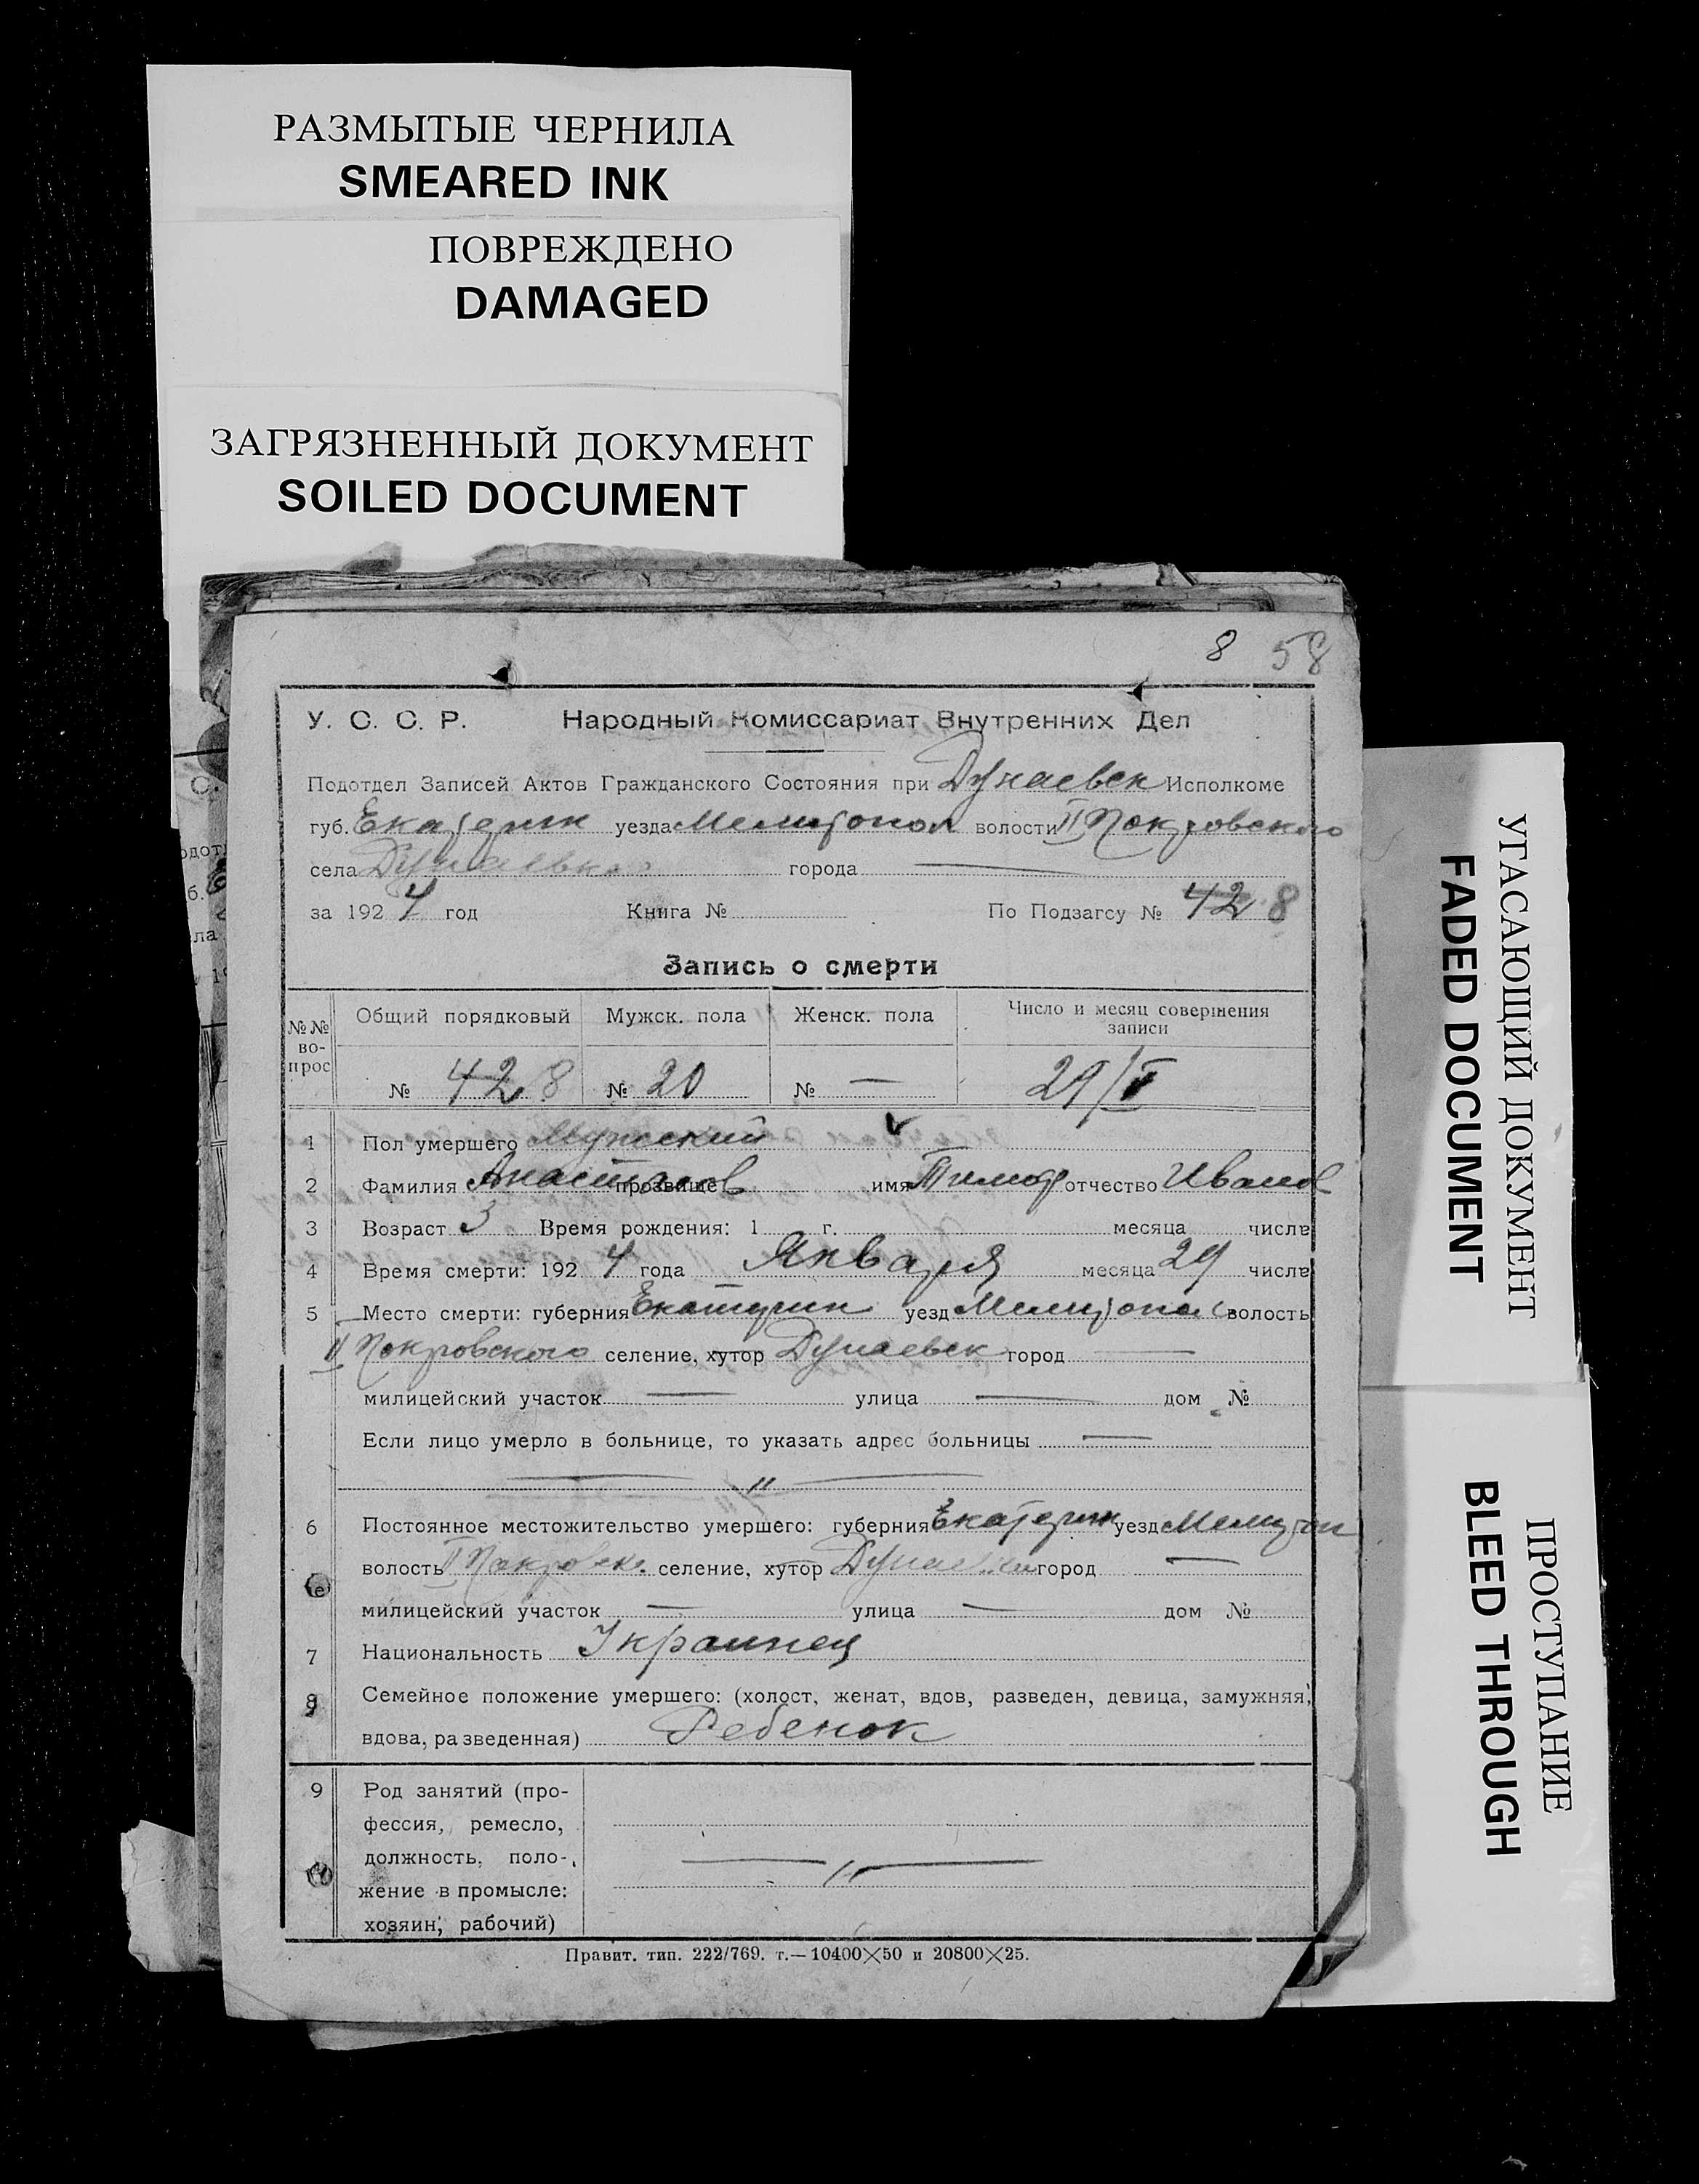 РАЗМЫТЫЕ ЧЕРНИЛА
SMEARED INK
ПОВРЕЖДЕНО
DAMAGED
ЗАГРЯЗНЕННЫЙ ДОКУМЕНТ
SOILED DOCUMENT
8 58
У. С. С. Р. Народный Комиссариат Внутренних Дел
Подотдел Записей Актов Гражданского Состояния при Дунаевск Исполкоме
губ. Екатерин уезда Мелитопол волости II Покровского
села Дунаевка города —
за 1924 год Книга № По Подзагсу № 42 8
Запись о смерти
№№ вопрос Общий порядковый Мужск. пола Женск. пола Число и месяц совершения записи
№ 42 8 № 20 № — 29/I
1 Пол умершего Мужский
2 Фамилия Анастасов прозвище имя Тимоф отчество Иванов
3 Возраст 3 Время рождения: 1 г. месяца числа
4 Время смерти: 1924 года Января месяца 29 числа
5 Место смерти: губерния Екатерин уезд Мелитопол волость
II Покровского селение, хутор Дунаевск город —
милицейский участок — улица — дом №
Если лицо умерло в больнице, то указать адрес больницы —
— " —
6 Постоянное местожительство умершего: губерния Екатерин уезд Мелитоп
волость II Покровск. селение, хутор Дунаевка город —
милицейский участок — улица — дом №
7 Национальность Украинец
8 Семейное положение умершего: (холост, женат, вдов, разведен, девица, замужняя,
вдова, разведенная) Ребенок
9 Род занятий (про-
фессия, ремесло,
должность, поло-
жение в промысле:
хозяин, рабочий)
— " —
Правит. тип. 222/769. т.—10400×50 и 20800×25.
УГАСАЮЩИЙ ДОКУМЕНТ
FADED DOCUMENT
ПРОСТУПАНИЕ
BLEED THROUGH